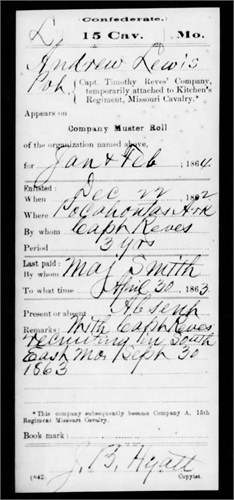 Confederate.
L 15 Cav. Mo.
Andrew Lewis
Pvt. Capt. Timothy Reves' Company, temporarily attached to Kitchen's Regiment, Missouri Cavalry.*
Appears on
Company Muster Roll
of the organization named above,
for Jan & Feb, 1864.
Enlisted:
When Dec 22, 1862
Where Pocahontas Ark
By whom Capt Reves
Period 3 yrs
Last paid:
By whom Maj Smith
To what time April 30, 1863
Present or absent Absent
Remarks: With Capt Reves
recruiting in South
East Mo. Sept 30
1863
*This company subsequently became Company A, 15th Regiment Missouri Cavalry.
Book mark:
(642) J. B. Hyatt
Copyist.